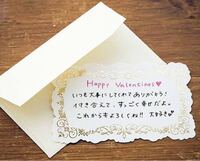 Happy Valentines♥
いつも大事にしてくれてありがとう!
付き合えて、すっごく幸せだよ。
これからもよろしくね!! 大好き♥